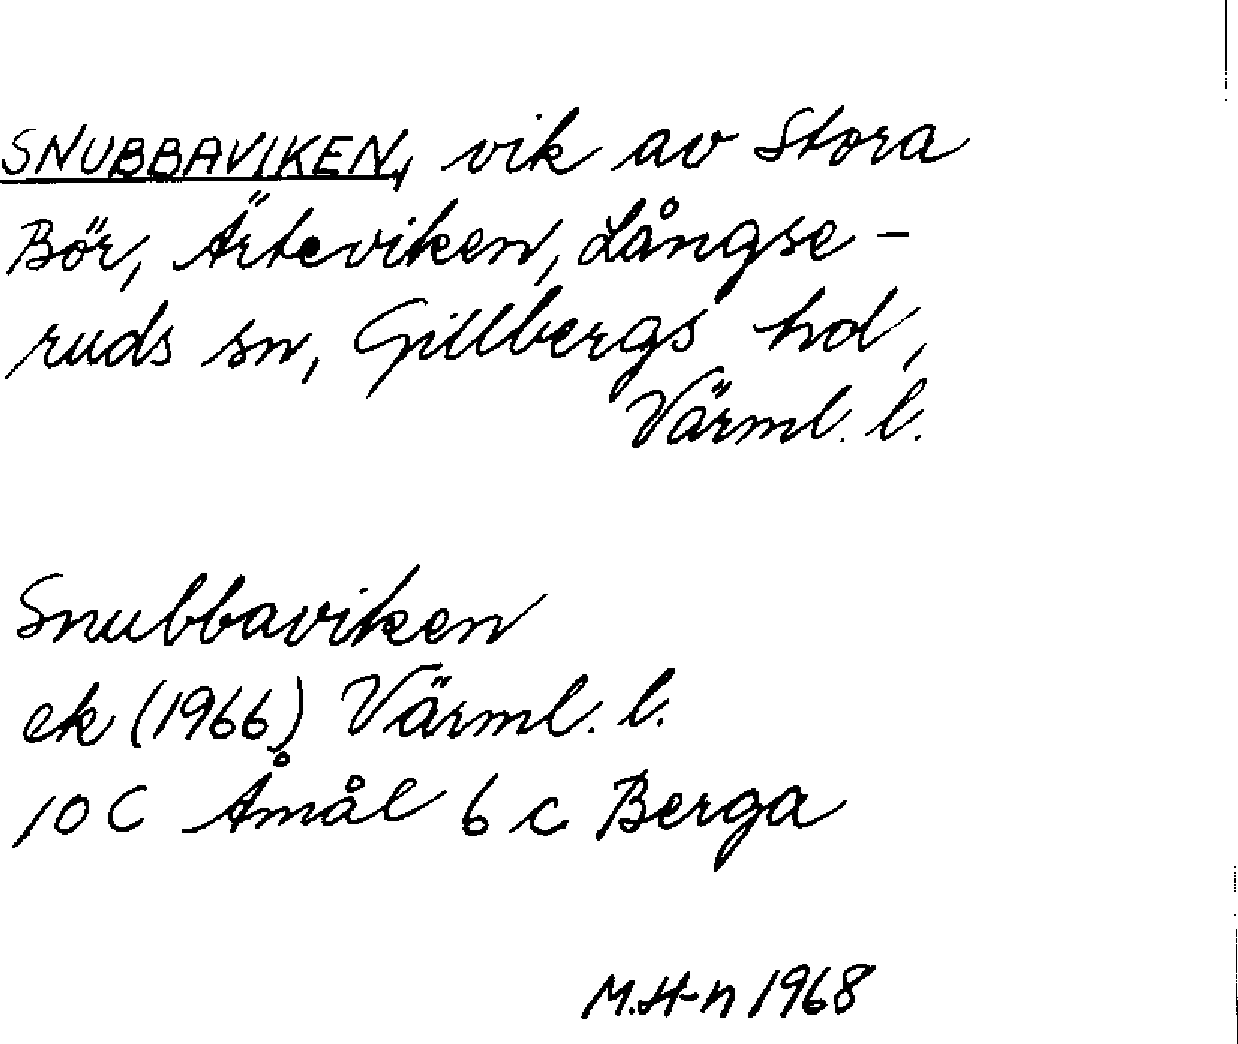 SNUBBAVIKEN, vik av Stora
Bör, Ärteviken, Långse-
ruds sn, Gillbergs hd,
Värml. l.
Snubbaviken
ek (1966) Värml. l.
10 C Åmål 6 c Berga
M.H-n 1968